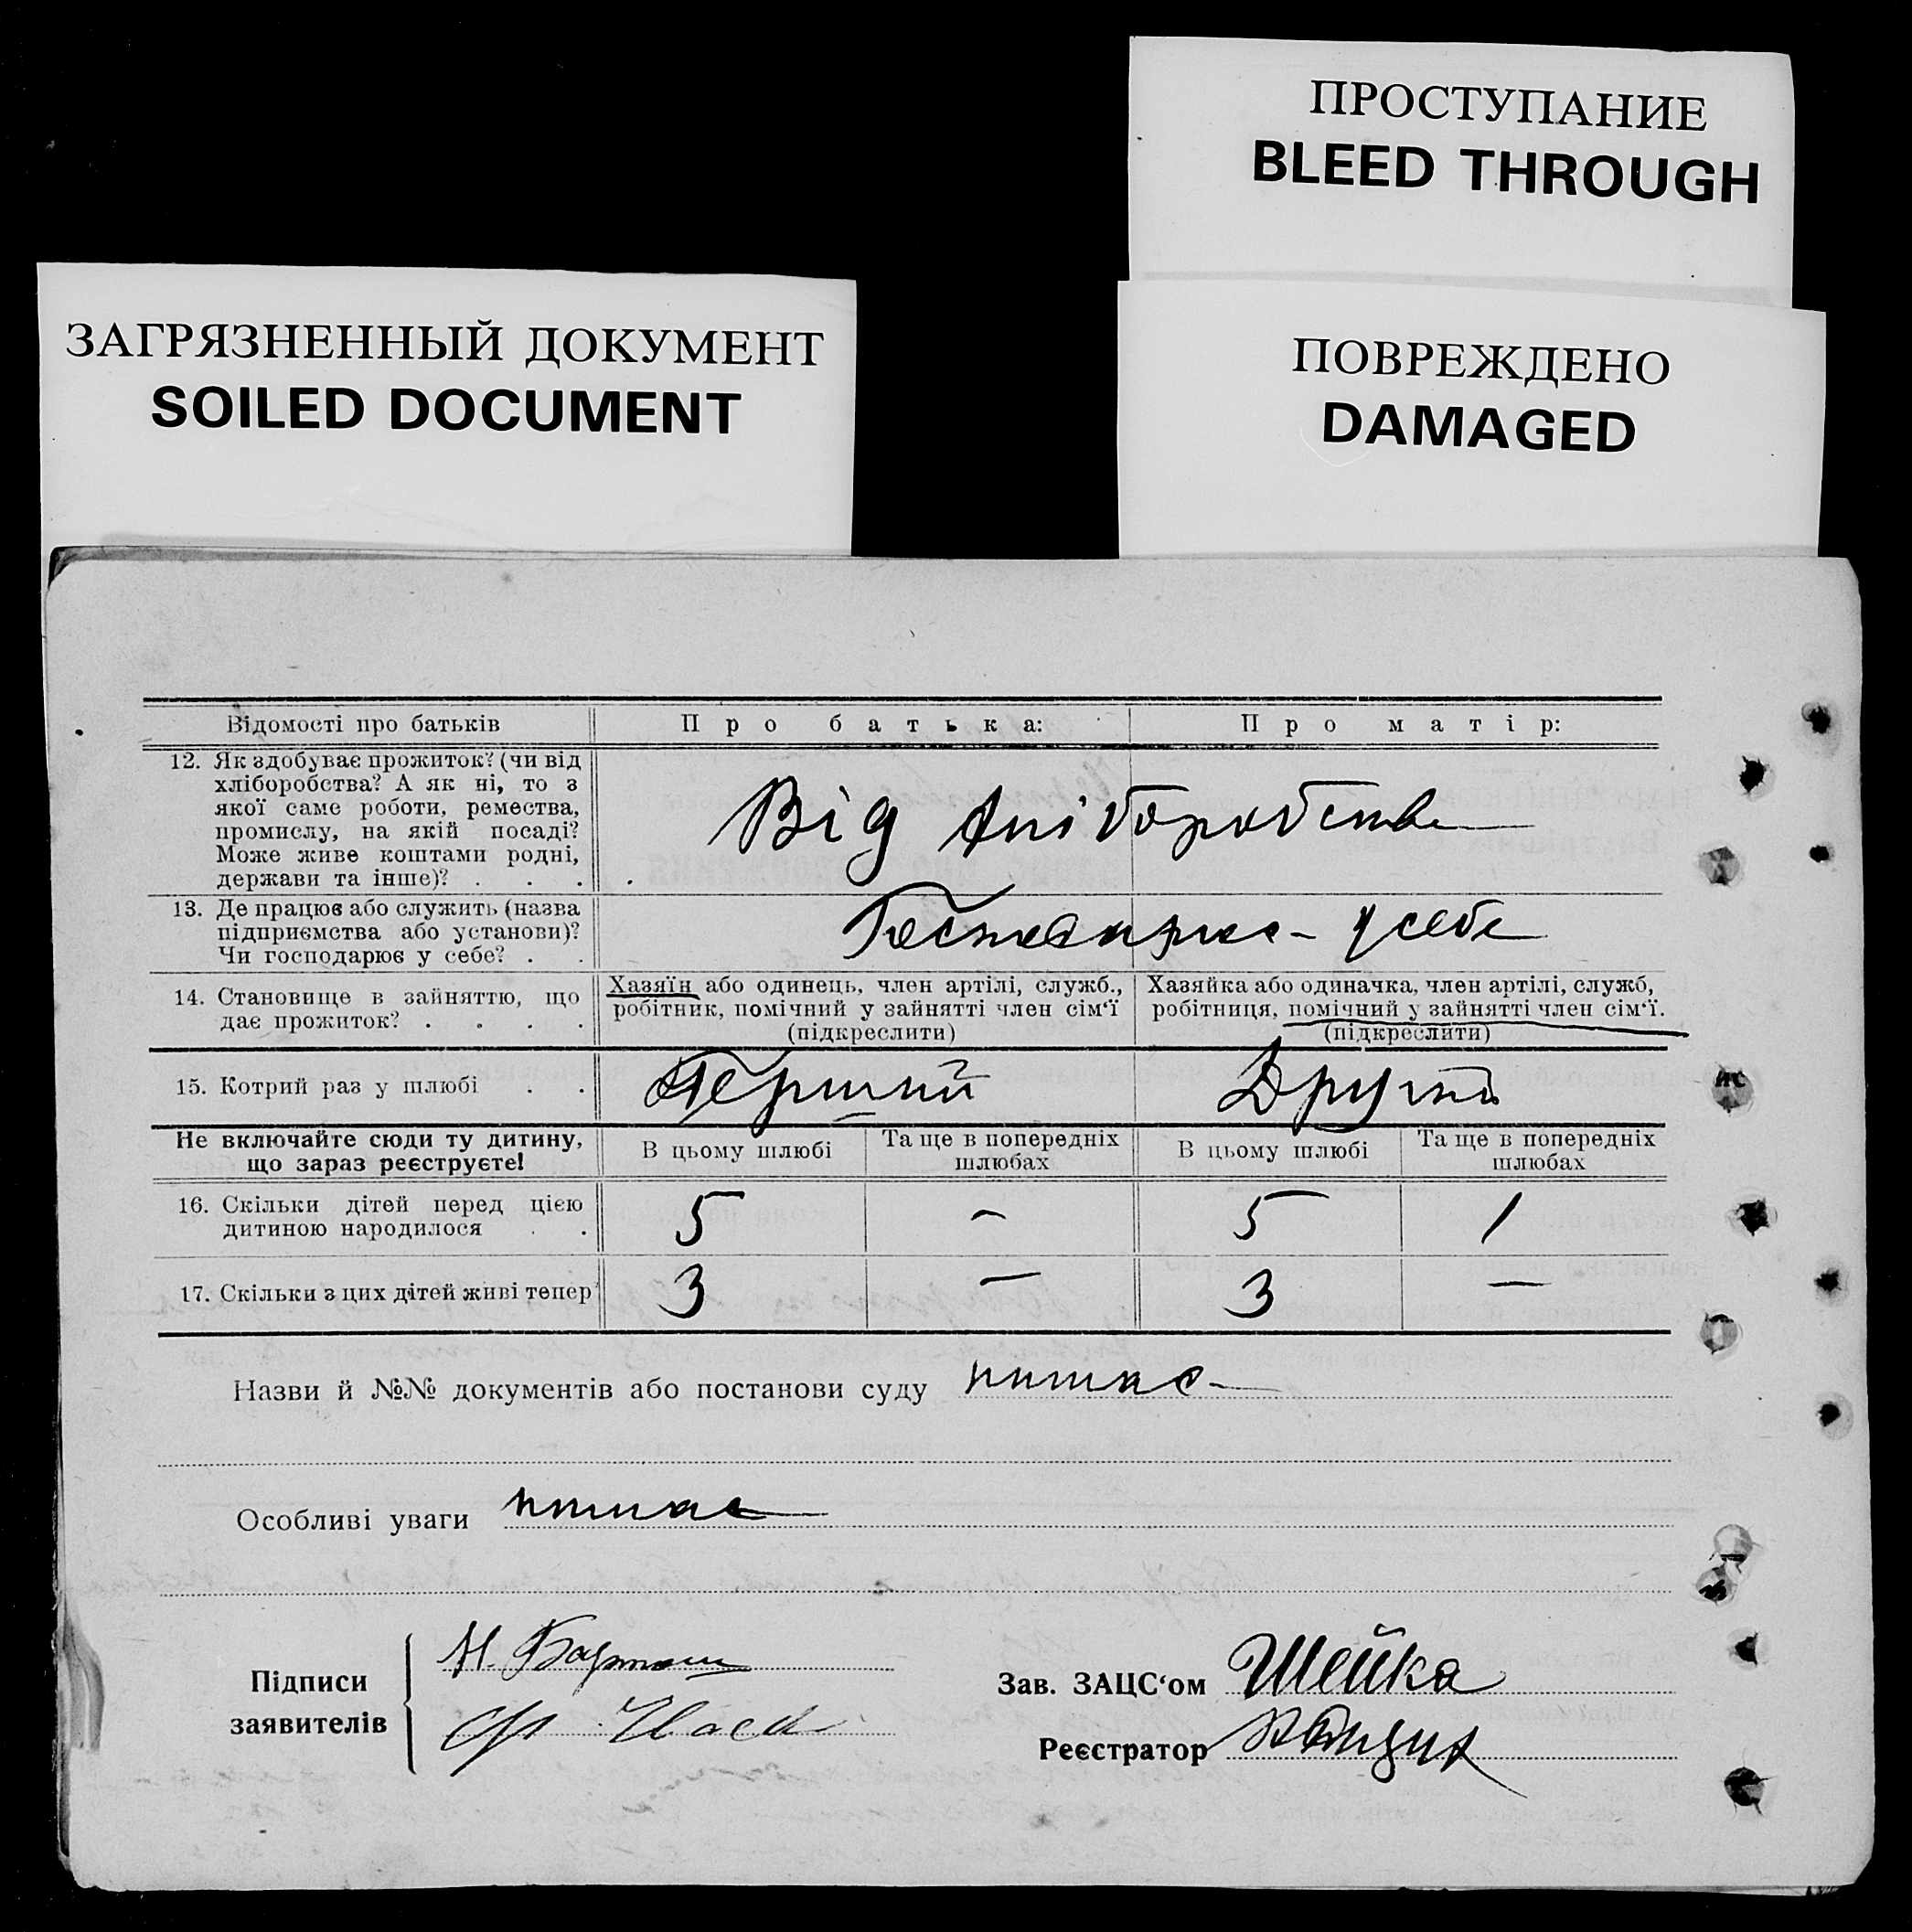 ПРОСТУПАНИЕ
BLEED THROUGH
ЗАГРЯЗНЕННЫЙ ДОКУМЕНТ
SOILED DOCUMENT
ПОВРЕЖДЕНО
DAMAGED
Відомості про батьків
Про батька:
Про матір:
12. Як здобуває прожиток? (чи від
хліборобства? А як ні, то з
якої саме роботи, ремества,
промислу, на якій посаді?
Може живе коштами родні,
держави та інше)? . . .
Від хліборобства
13. Де працює або служить (назва
підприємства або установи)?
Чи господарює у себе? . .
у себе
14. Становище в зайняттю, що
дає прожиток? . . . .
Хазяїн або одинець, член артілі, служб.,
робітник, помічний у зайнятті член сім'ї
(підкреслити)
Хазяйка або одиначка, член артілі, служб,
робітниця, помічний у зайнятті член сім'ї.
(підкреслити)
15. Котрий раз у шлюбі . .
Перший
Другий
Не включайте сюди ту дитину,
що зараз реєструєте!
В цьому шлюбі
Та ще в попередніх
шлюбах
В цьому шлюбі
Та ще в попередніх
шлюбах
16. Скільки дітей перед цією
дитиною народилося . .
5 — 5 1
17. Скільки з цих дітей живі тепер
3 — 3 —
Назви й №№ документів або постанови суду немає
Особливі уваги немає
Підписи
заявителів
Н.
Зав. ЗАЦС'ом Шейка
Реєстратор